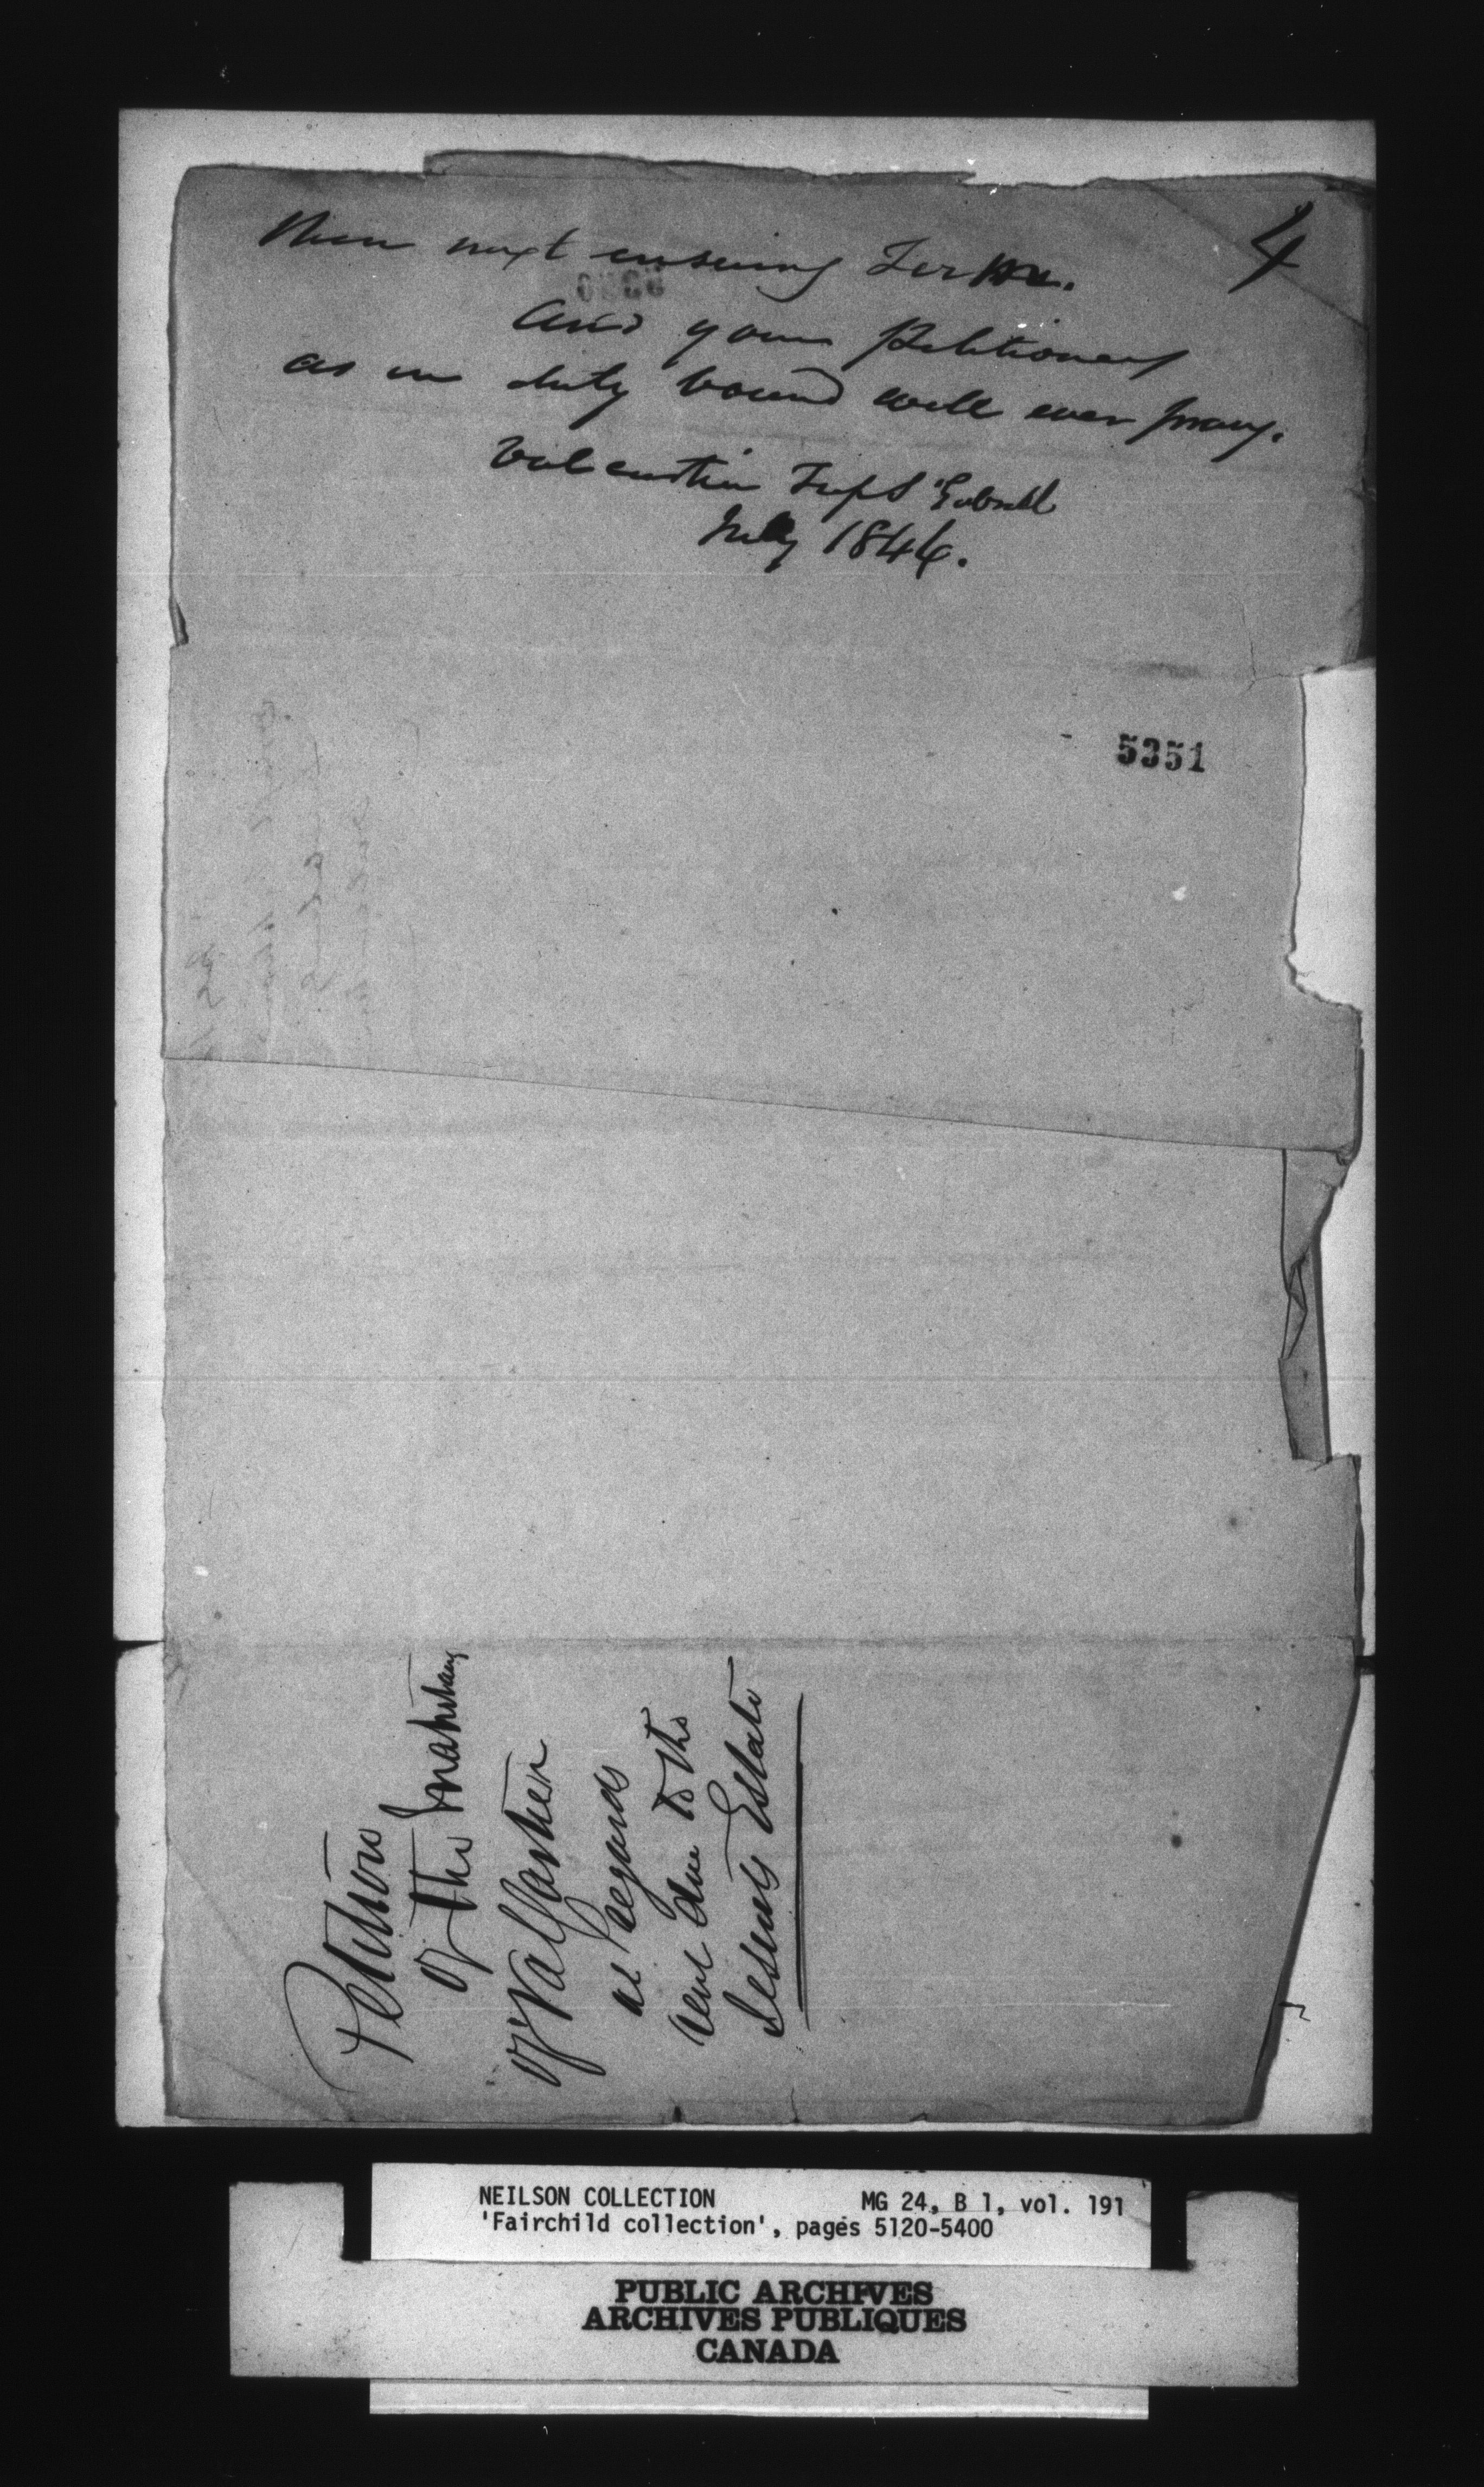 4
next ensuing Term.
And your Petitioners
as in duty bound will ever pray.
Valcartier
July 1846.
5351
Petition
of the
of Valcartier
as Regards
rent due to the
Jesuits Estate
NEILSON COLLECTION MG 24, B 1, vol. 191
'Fairchild collection', pages 5120-5400
PUBLIC ARCHIVES
ARCHIVES PUBLIQUES
CANADA